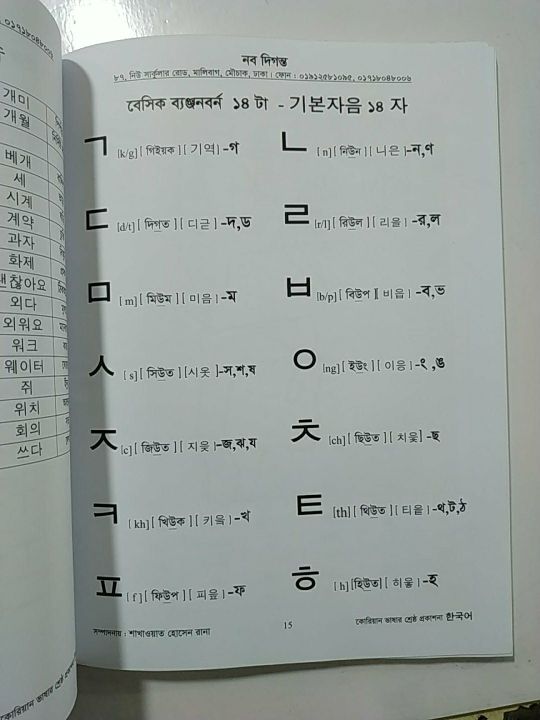 ০১৭১৮০৪৮০০৬
개미
개월
베개
세
시계
계약
과자
화제
괜찮아요
외다
외워요
워크
웨이터
쥐
위치
회의
쓰다
কোরিয়ান ভাষার শ্রেষ্ঠ প্রকাশনা
নব দিগন্ত
৮৭, নিউ সার্কুলার রোড, মালিবাগ, মৌচাক, ঢাকা। ফোন : ০১৯১২৫৮১০৯৫, ০১৭১৮০৪৮০০৬
বেসিক ব্যঞ্জনবর্ন ১৪ টা - 기본자음 ১৪ 자
ㄱ [k/g] [ গিইয়ক ] [ 기역 ] -গ ㄴ [ n ] [ নিউন ] [ 니은 ] -ন,ণ
ㄷ [d/t] [ দিগত ] [ 디귿 ] -দ,ড ㄹ [r/l] [ রিউল ] [ 리을 ] -র,ল
ㅁ [ m ] [ মিউম ] [ 미음 ] -ম ㅂ [b/p] [ বিউপ ][ 비읍 ] -ব,ভ
ㅅ [ s ] [ সিউত ] [시옷 ] -স,শ,ষ ㅇ [ng] [ ইউং ] [ 이응 ] -ং ,ঙ
ㅈ [c] [ জিউত ] [ 지읒 ] -জ,ঝ,য ㅊ [ch] [ ছিউত ] [ 치읓] -ছ
ㅋ [ kh ] [ খিউক ] [ 키읔 ] -খ ㅌ [th] [ থিউত ] [ 티읕 ] -থ,ট,ঠ
ㅍ [ f ] [ ফিউপ ] [ 피읖 ] -ফ ㅎ [ h] [হিউত] [ 히읗 ] -হ
সম্পাদনায় : শাখাওয়াত হোসেন রানা 15 কোরিয়ান ভাষার শ্রেষ্ঠ প্রকাশনা 한국어